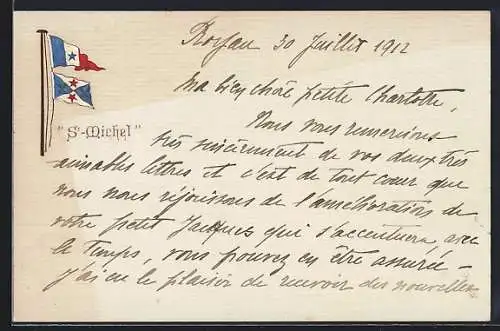 Royan 30 Juillet 1912
"St-Michel"
Ma bien chère petite Charlotte,
Nous vous remercions
très sincèrement de vos deux très
aimables lettres et c'est de tout cœur que
nous nous réjouissons de l'amélioration de
votre petit Jacques qui s'accentuera avec
le temps, vous pouvez en être assurée -
j'ai eu le plaisir de recevoir des nouvelles